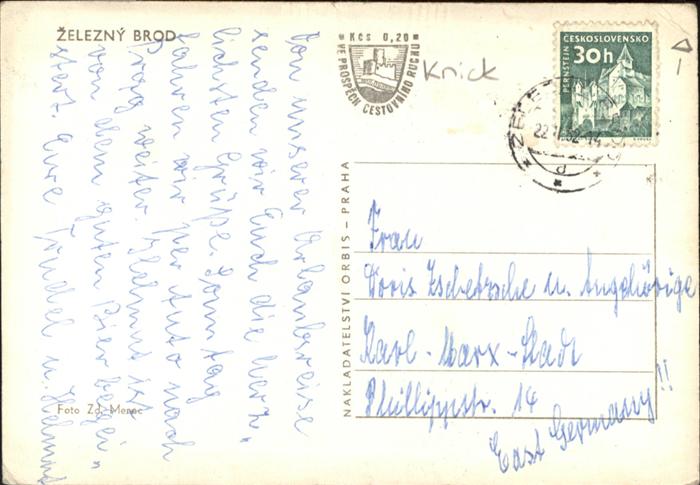 ŽELEZNÝ BROD
Von unserer Urlaubsreise
senden wir Euch die herz-
lichsten Grüße. Sonntag
fahren wir per Auto nach
Prag weiter. Helmut ist
von dem guten Bier begei-
stert. Eure Trudel u. Helmut
Foto Zd. Menec
Kčs 0,20
VE PROSPĚCH CESTOVNÍHO RUCHU
Knick
ČESKOSLOVENSKO
30h
PERNŠTEJN
NAKLADATELSTVÍ ORBIS – PRAHA
Frau
Doris Zschetzsche u. Angehörige
Karl-Marx-Stadt
Phillippstr. 14
East Germany!!